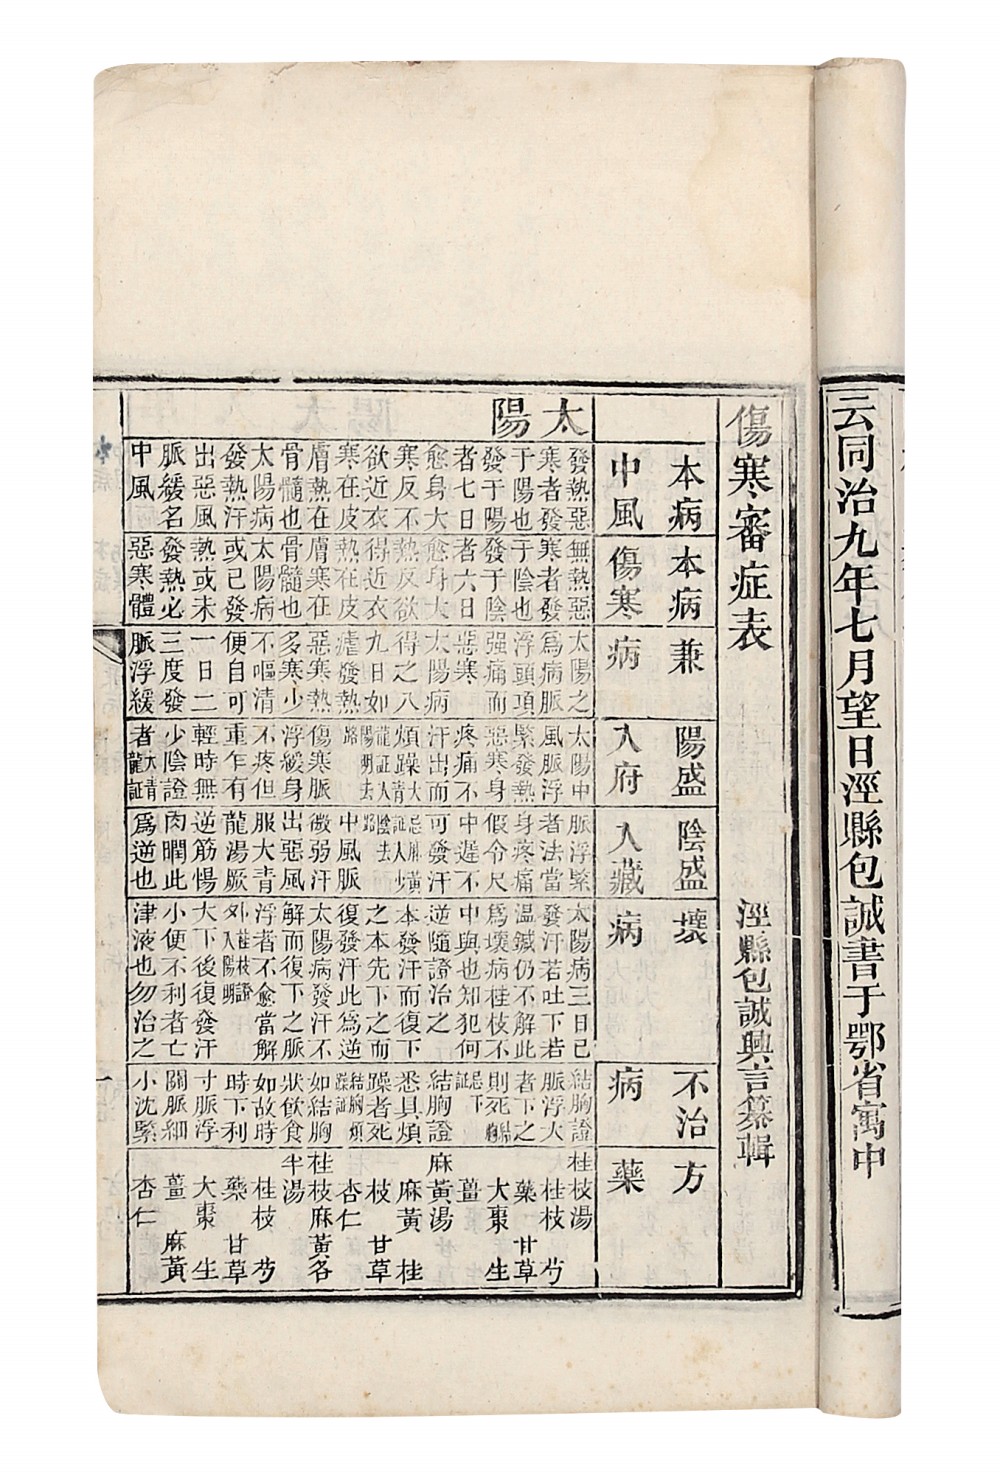 云同治九年七月望日涇縣包誠書于鄂省寓中
傷寒審症表
涇縣包誠興言纂輯
本病
中風
本病
傷寒
兼
病
陽盛
入府
陰盛
入藏
壞
病
不治
病
方
藥
太陽
發熱惡
寒者發
于陽也
發于陽
者七日
愈身大
寒反不
欲近衣
寒在皮
膚熱在
骨髓也
太陽病
發熱汗
出惡風
脈緩名
中風
無熱惡
寒者發
于陰也
發于陰
者六日
愈身大
熱反欲
得近衣
熱在皮
膚寒在
骨髓也
太陽病
或已發
熱或未
發熱必
惡寒體
太陽之
爲病脈
浮頭項
強痛而
惡寒
太陽病
得之八
九日如
瘧發熱
惡寒熱
多寒少
不嘔清
便自可
一日二
三度發
脈浮緩
太陽中
風脈浮
緊發熱
惡寒身
疼痛不
汗出而
煩躁大青
龍証入
陽明去
路
傷寒脈
浮緩身
不疼但
重乍有
輕時無
少陰證
者大青龍証
脈浮緊
者法當
身疼痛
假令尺
中遲不
可發汗
忌麻黃
証入
陰去
路
中風脈
微弱汗
出惡風
服大青
龍湯厥
逆筋惕
肉瞤此
爲逆也
太陽病三日已
發汗若吐下若
溫鍼仍不解此
爲壞病桂枝不
中與也知犯何
逆隨證治之
本發汗而復下
之本先下之而
復發汗此爲逆
太陽病發汗不
解而復下之脈
浮者不愈當解
外桂枝證入陽明
大下後復發汗
小便不利者亡
津液也勿治之
結胸證
脈浮大
者下之
則死結胸
忌下証
結胸證
悉具煩
躁者死
結胸煩躁証
如結胸
狀飲食
如故時
時下利
寸脈浮
關脈細
小沈緊
桂枝湯
桂枝 芍
藥 甘草
大棗 生
薑
麻黃湯
麻黃 桂
枝 甘草
杏仁
桂枝麻黃各
半湯
桂枝 芍
藥 甘草
大棗 生
薑 麻黃
杏仁